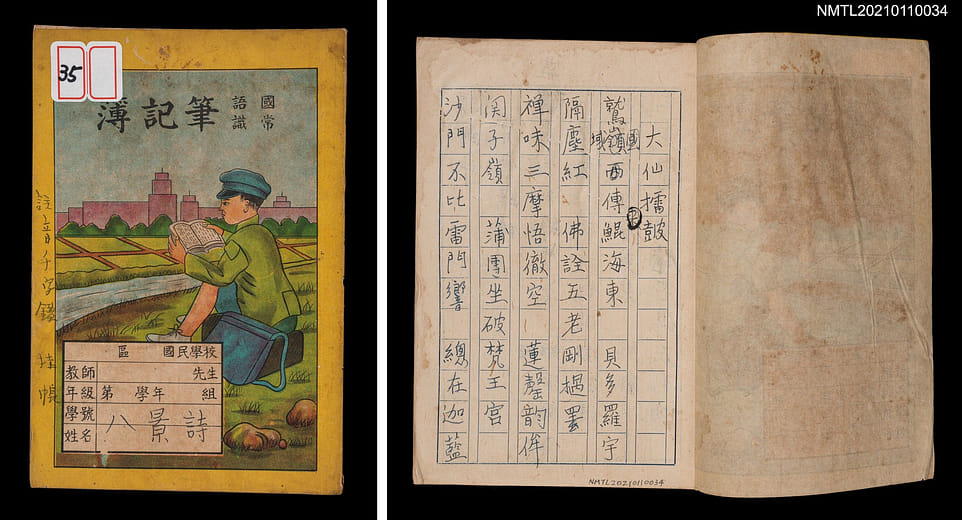 NMTL20210110034
35
國語
常識
筆記簿
註音千字鑑
區 國民學校
教師 先生
年級 第 學年 組
學號
姓名
八景詩
大仙擂鼓
鷲嶺西傳鯤海東 貝多羅宇
隔塵紅 佛詮五老剛撾罢
禅味三摩悟徹空 蓮磬韵侔
関子嶺 蒲團坐破梵王宮
沙門不比雷門響 總在迦藍
NMTL20210110034